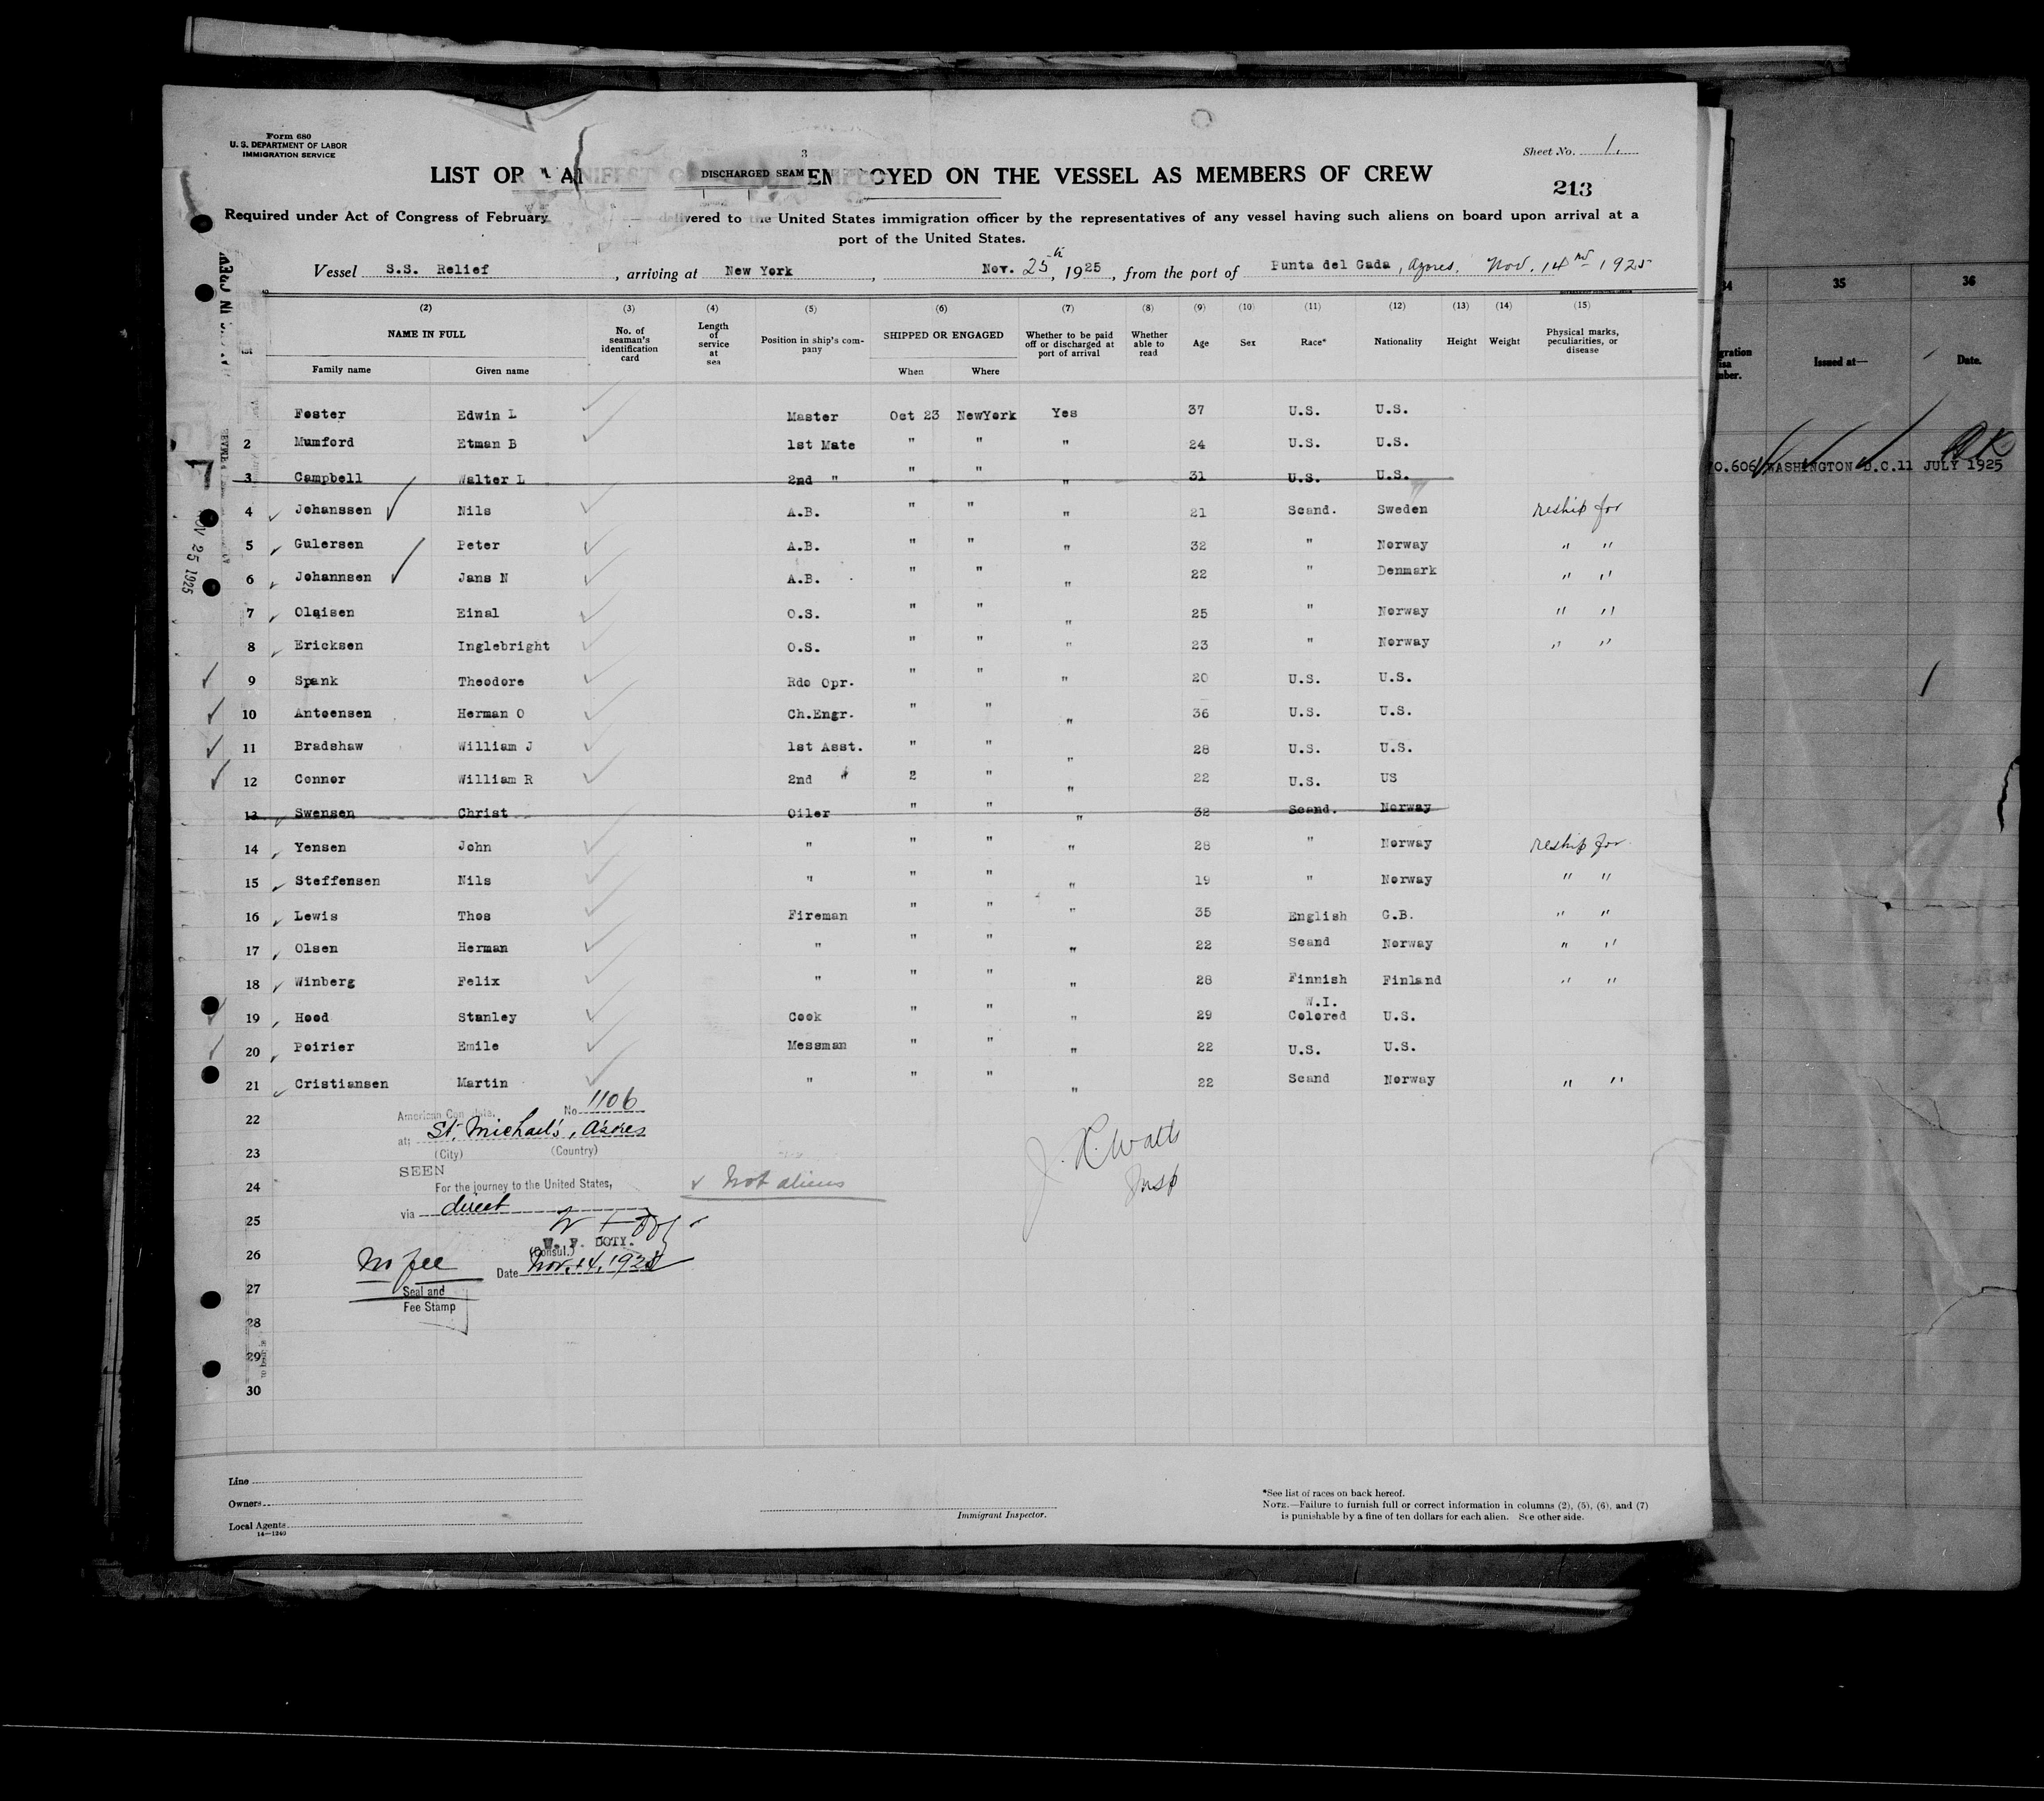 Form 680
U. S. DEPARTMENT OF LABOR
IMMIGRATION SERVICE
3
Sheet No. 1.
LIST OR MANIFEST DISCHARGED SEAM EMPLOYED ON THE VESSEL AS MEMBERS OF CREW
213
Required under Act of Congress of February delivered to the United States immigration officer by the representatives of any vessel having such aliens on board upon arrival at a
port of the United States.
Vessel S.S. Relief, arriving at New York, Nov. 25th, 1925, from the port of Punta del Gada, Azores, Nov. 14 1925
(2) (3) (4) (5) (6) (7) (8) (9) (10) (11) (12) (13) (14) (15)
NAME IN FULL No. of seaman's identification card Length of service at sea Position in ship's company SHIPPED OR ENGAGED Whether to be paid off or discharged at port of arrival Whether able to read Age Sex Race* Nationality Height Weight Physical marks, peculiarities, or disease
Family name Given name When Where
Foster Edwin L Master Oct 23 NewYork Yes 37 U.S. U.S.
2 Mumford Etman B 1st Mate " " " 24 U.S. U.S.
3 Campbell Walter L 2nd " " " " 31 U.S. U.S.
4 Johanssen Nils A.B. " " " 21 Scand. Sweden reship for
5 Gulersen Peter A.B. " " " 32 " Norway " "
6 Johannsen Jans N A.B. " " " 22 " Denmark " "
7 Olaisen Einal O.S. " " " 25 " Norway " "
8 Ericksen Inglebright O.S. " " " 23 " Norway " "
9 Spank Theodore Rdo Opr. " " " 20 U.S. U.S.
10 Antoensen Herman O Ch.Engr. " " " 36 U.S. U.S.
11 Bradshaw William J 1st Asst. " " " 28 U.S. U.S.
12 Connor William R 2nd " 2 " " 22 U.S. US
13 Swensen Christ Oiler " " " 32 Scand. Norway
14 Yensen John " " " " 28 " Norway reship for
15 Steffensen Nils " " " " 19 " Norway " "
16 Lewis Thos Fireman " " " 35 English G.B. " "
17 Olsen Herman " " " " 22 Scand Norway " "
18 Winberg Felix " " " " 28 Finnish Finland " "
W.I.
19 Hood Stanley Cook " " " 29 Colored U.S.
20 Poirier Emile Messman " " " 22 U.S. U.S.
21 Cristiansen Martin " " " " 22 Scand Norway " "
22
23
24
25
26
27
28
29
30
American No 1106
at; St. Michael's, Azores
(City) (Country)
SEEN
For the journey to the United States,
via direct
W. F. DOTY.
(Consul.)
Date Nov. 14, 1925
No fee
Seal and
Fee Stamp
✓ Not aliens
J. R. Watts
Insp
NOV 25 1925
Line
Owners
Local Agents
14—1240
Immigrant Inspector.
*See list of races on back hereof.
NOTE.—Failure to furnish full or correct information in columns (2), (5), (6), and (7)
is punishable by a fine of ten dollars for each alien. See other side.
34 35 36
Issued at— Date.
O.606 WASHINGTON D.C. 11 JULY 1925
OK